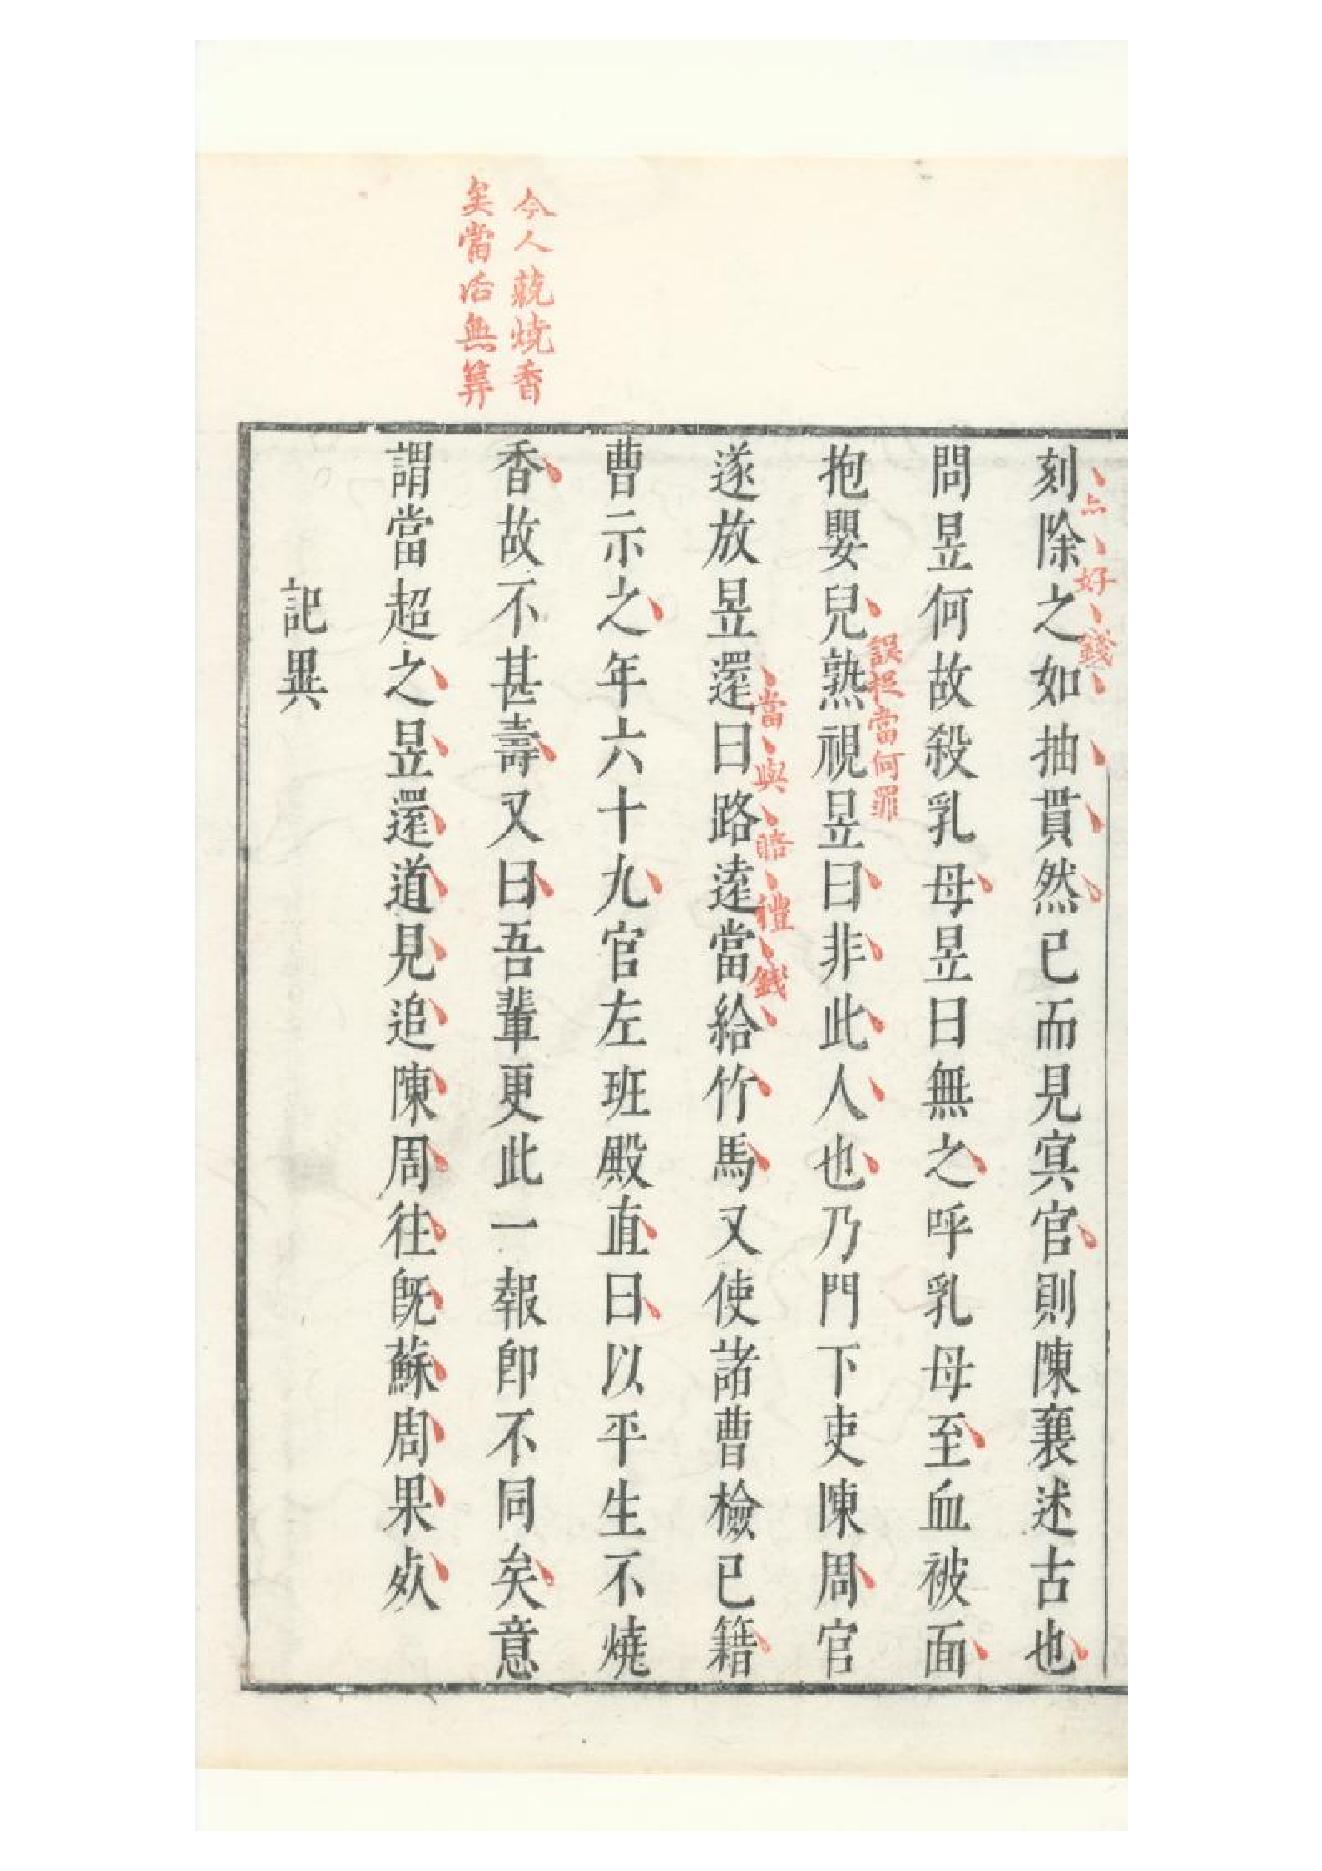 今人蓺燒香
矣當活無筭
刻除之如抽貫然已而見冥官則陳襄述古也
亦好錢
問昱何故殺乳母昱曰無之呼乳母至血被面
抱嬰兒熟視昱曰非此人也乃門下吏陳周官
誤捉當何罪
遂放昱還曰路遠當給竹馬又使諸曹檢已籍
當與賠禮錢
曹示之年六十九官左班殿直曰以平生不燒
香故不甚壽又曰吾輩更此一報即不同矣意
謂當超之昱還道見追陳周往既蘇周果死
記異